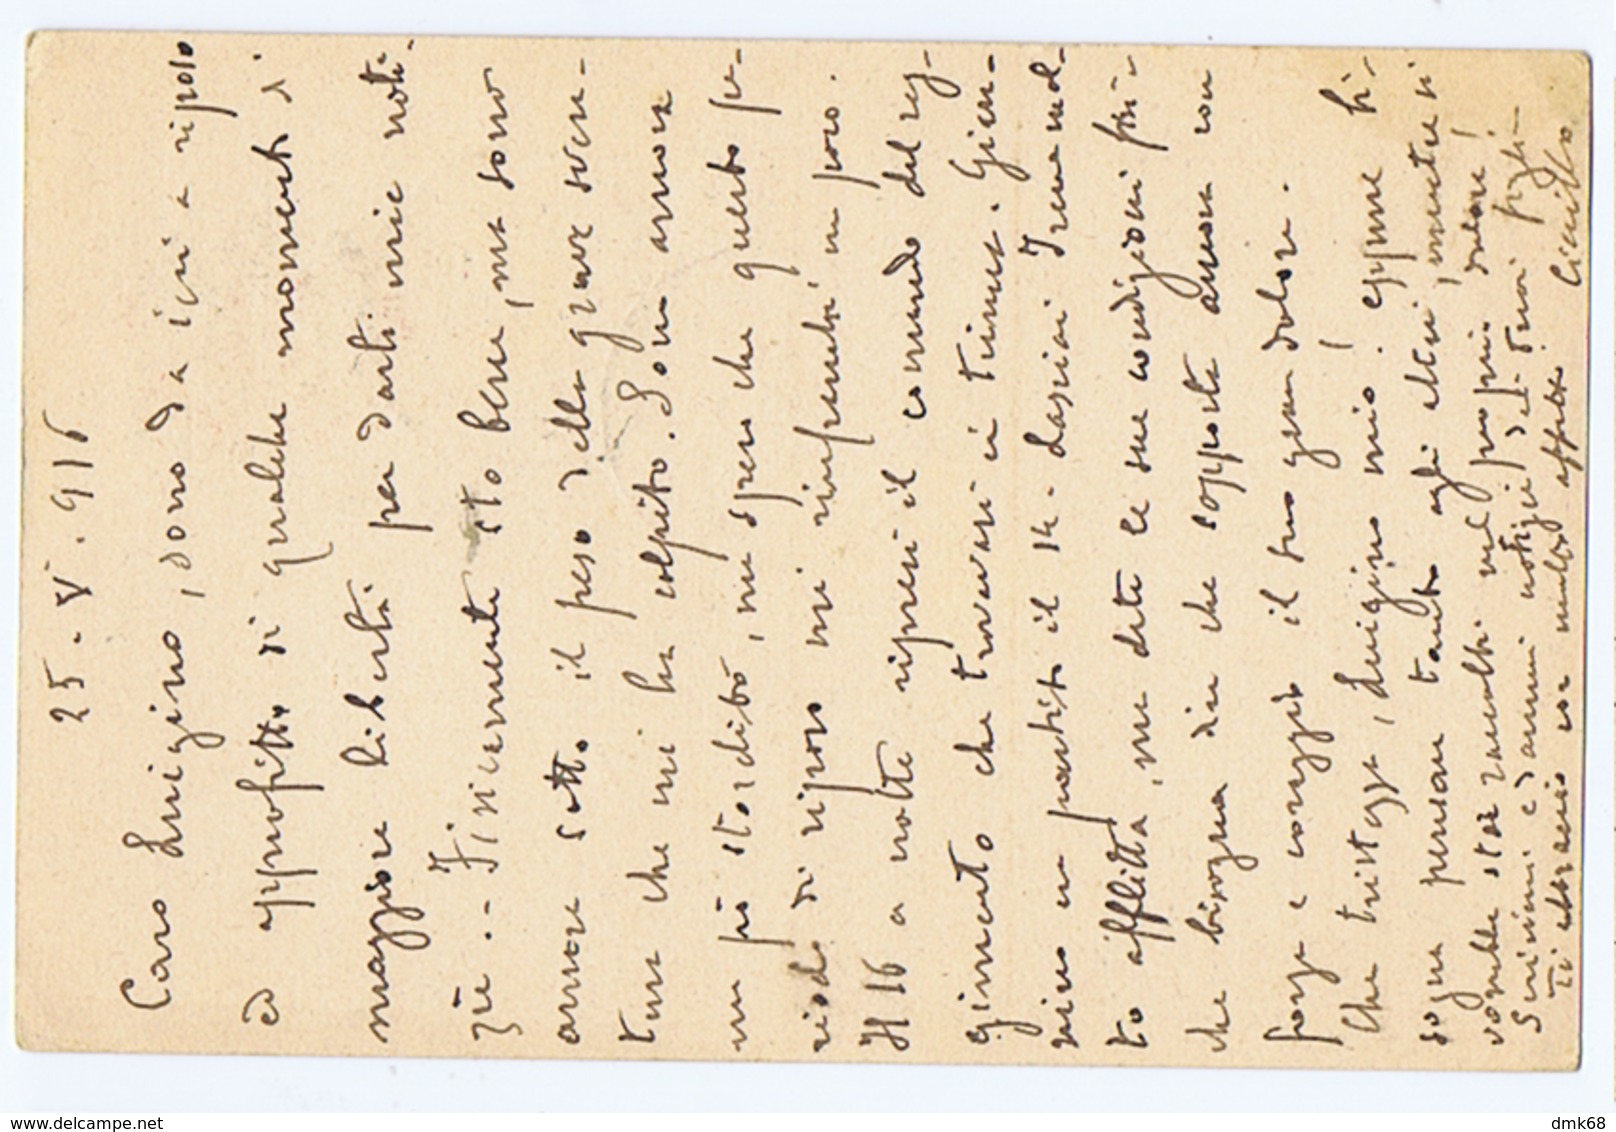 25 - VI. 916
Caro Luigino, sono da ieri a riposo
ed approfitto di qualche momento di
maggiore libertà per darti mie noti-
zie. - Fisicamente sto bene, ma sono
ancora sotto il peso della grave sven-
tura che mi ha colpito. Sono ancora
un pò stordito, ma spero che questo pe-
riodo di riposo mi rinfranchi un poco.
Il 16 a notte ripresi il comando del reg-
gimento che trovavasi in trincea. Giun-
sino partito il 14. Lasciai Irma mol-
to afflitta, ma date le sue condizioni fisi-
che bisogna dire che sopporta ancora con
forza e coraggio il suo gran dolore.
Che tristezza, Luigino mio! eppure bi-
sogna pensare tanto agli altri, mentre si
vorrebbe star raccolti nel proprio dolore!
Scrivimi e dammi notizie dei tuoi figli -
Ti abbraccio con molto affetto